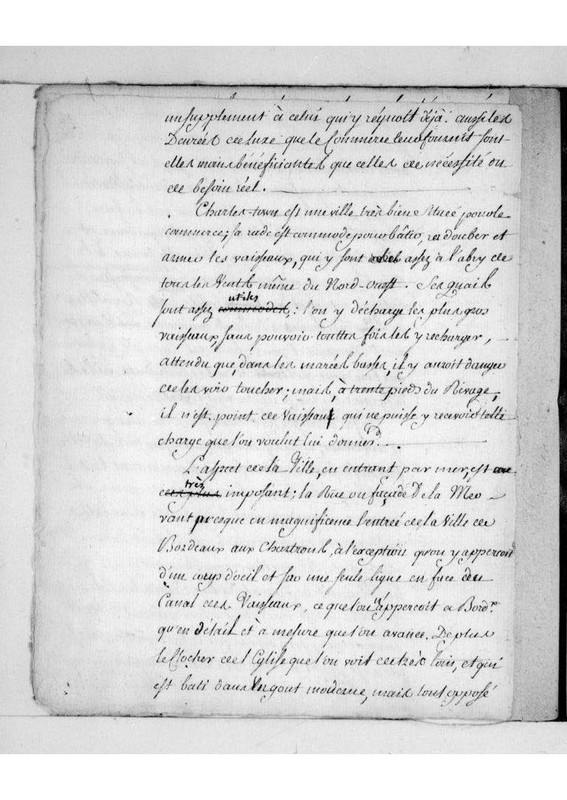 un supplement à celui qui y régnoit déjà. aussi les
Denrées de luxe que le Commerce leur fournit sont-
elles moins bénéficiantes que celles de nécessité ou
de besoin réel.
Charles-town est une ville très bien située pour le
commerce; sa rade est commode pour bâtir, radouber et
armer les vaisseaux, qui y sont assez à l'abry de
tous les vents même du Nord-ouest. Ses quais
sont assez utiles commodes: l'on y décharge les plus gros
vaisseaux, sans pouvoir touttes fois les y recharger,
attendu que, dans les marées basses, il y auroit danger
de les voir toucher; mais, à trente pieds du Rivage,
il n'est point de vaisseau qui ne puisse y recevoir telle
charge que l'on voulut lui donner.
L'aspect de la Ville, en entrant par mer, est
très imposant; la Rue ou façade de la Mer
vant presque en magnificence l'entrée de la Ville de
Bordeaux aux Chartrons, à l'exception qu'on y apperçoit
d'un coup d'oeil et sur une seule ligne en face du
Canal les Vaisseaux, ce que l'on n'apperçoit a Bordx.
qu'en détail et à mesure que l'on avance. De plus
le Clocher de l'Eglise que l'on voit de très loin, et qui
est bati dans un gout moderne, mais tout opposé